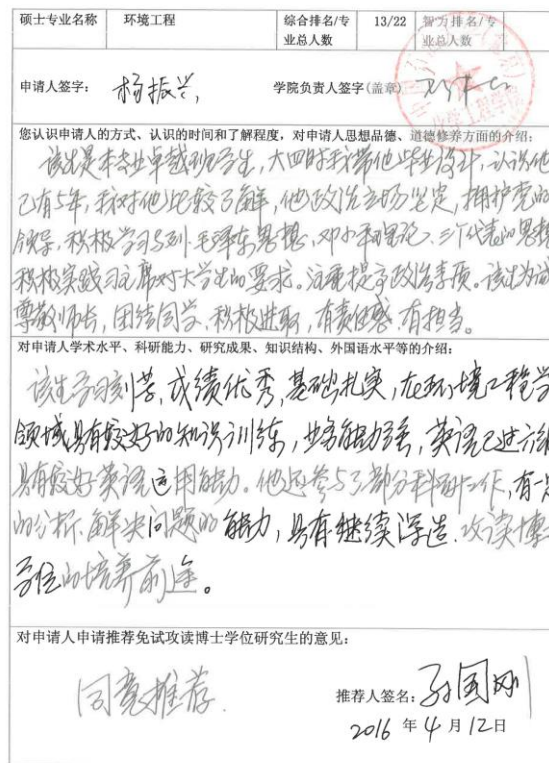 硕士专业名称 环境工程 综合排名/专业总人数 13/22 智力排名/专业总人数
申请人签字: 杨振兴 学院负责人签字(盖章)
您认识申请人的方式、认识的时间和了解程度,对申请人思想品德、道德修养方面的介绍:
该生是本专业卓越班学生,大四时我带他毕业设计,认识他
已有5年,我对他比较了解,他政治立场坚定,拥护党的
领导,积极学习马列、毛泽东思想、邓小平理论、三个代表的思想
积极实践习主席对大学生的要求。注重提高政治素质。该生为诚
尊敬师长,团结同学、积极进取,有责任感、有担当。
对申请人学术水平、科研能力、研究成果、知识结构、外国语水平等的介绍:
该生学习刻苦,成绩优秀,基础扎实,在环境工程学
领域具有较好的知识训练,业务能力强,英语已过六级
具有较好英语运用能力。他还参与了部分科研工作,有一定
的分析、解决问题的能力,具有继续深造、攻读博士
学位的培养前途。
对申请人申请推荐免试攻读博士学位研究生的意见:
同意推荐.
推荐人签名: 孙国刚
2016 年 4 月 12 日